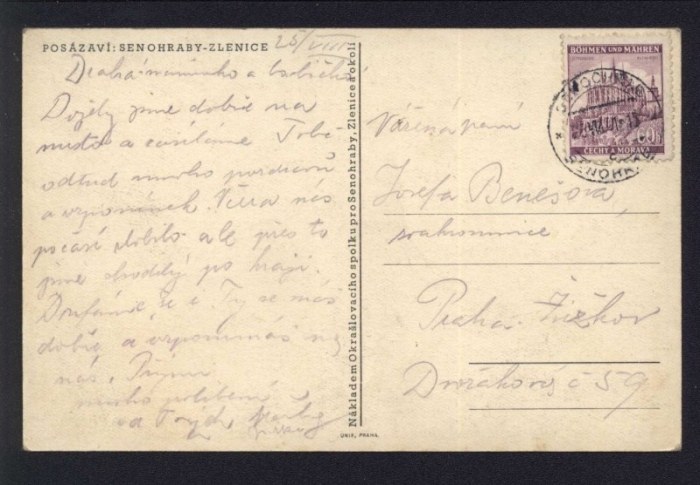 POSÁZAVÍ: SENOHRABY-ZLENICE
25/VIII
Drahá maminko a
Dojely jsme dobře na
místo a zasíláme Tobě
odtud mnoho pozdravů
a vzpomínek. Včera nás
počasí zlobilo ale přes to
jsme chodily po hájí.
Doufáme, že i Ty se máš
dobře a vzpomínáš na
nás. Přijmi
mnoho políbení
od Tvých
Nákladem Okrašlovacího spolku pro Senohraby, Zlenice a okolí
UNIE, PRAHA
BÖHMEN UND MÄHREN
60h
ČECHY A MORAVA
SENOHRABY
Vážená paní
Josefa Benešová
soukromnice
Praha. Žižkov
Dvořákova č 59